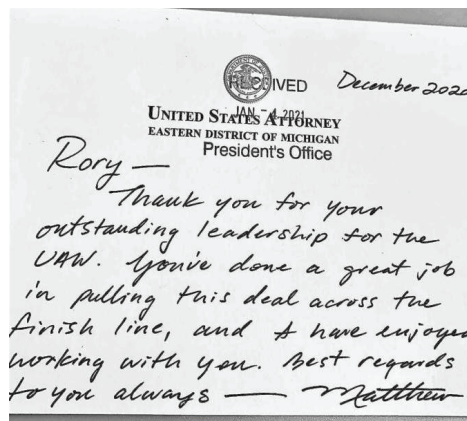 RECEIVED
December 2020
JAN - 4 2021
UNITED STATES ATTORNEY
EASTERN DISTRICT OF MICHIGAN
President's Office
Rory —
Thank you for your
outstanding leadership for the
UAW. You've done a great job
in pulling this deal across the
finish line, and I have enjoyed
working with you. Best regards
to you always — Matthew